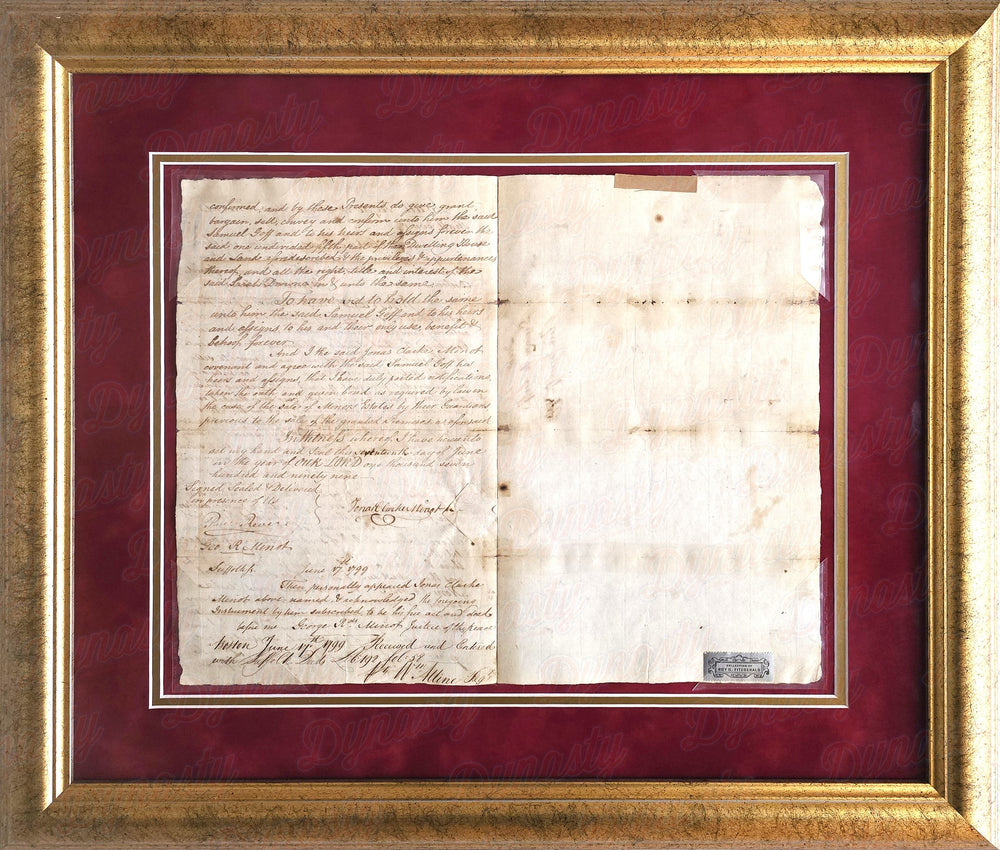 confirmed, and by these Presents, do give, grant
bargain, sell, convey and confirm unto him the said
Samuel Goff and to his heirs and assigns forever the
said one undivided fifth part of the Dwelling House
and Lands aforedescribed & the privileges & appurtenances
thereof, and all the right, title and interest of the
said Sarah in & unto the same
To have and to hold the same
unto him the said Samuel Goff and to his heirs
and assigns to his and their only use, benefit &
behoof forever
And I the said Jonas Clarke Minot
covenant and agree with the said Samuel Goff his
heirs and assigns, that I have duly posted notifications
taken the oath and given bond as required by law in
the case of the Sale of Minors Estates by their Guardians
previous to the sale of the granted Premises as aforesaid
In Witness whereof I have hereunto
set my hand and Seal this seventeenth day of June
in the year of OUR LORD one thousand seven
hundred and ninety nine
Signed Sealed & Delivered
in presence of Us
Jonas Clarke Minot
Revere
Geo. R. Minot
Suffolk June 17th 1799
Then personally appeared Jonas Clarke
Minot above named & acknowledged the foregoing
Instrument by him subscribed to be his free act and deed
before me George Rds Minot Justice of the peace
Boston June 17th 1799 Received and Entred
with Suffolk Deeds Lib 192 fol 58
COLLECTION OF
ROY G. FITZGERALD
Dynasty